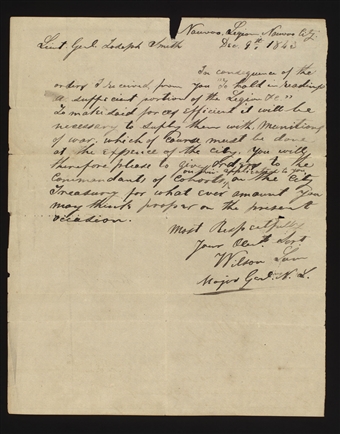 Nauvoo, Legion Nauvoo City
Lieut. Genl. Joseph Smith Dec 9th. 1843
In consequence of the
orders I received from you "To hold in readiness
a sufficient portion of the Legion &c"
To make said forces efficient it will be
necessary to suply them with Munitions
of war, which of Course must be done
at the expence of the City. You will
therefore please to give orders to the
on their application to you
Commandants of Cohorts, on the City
Treasury for what ever amount you
may think proper on the present
occasion.
Most Respectfully
Your Obt. Servt
Wilson Law
Major Genl. N. L.